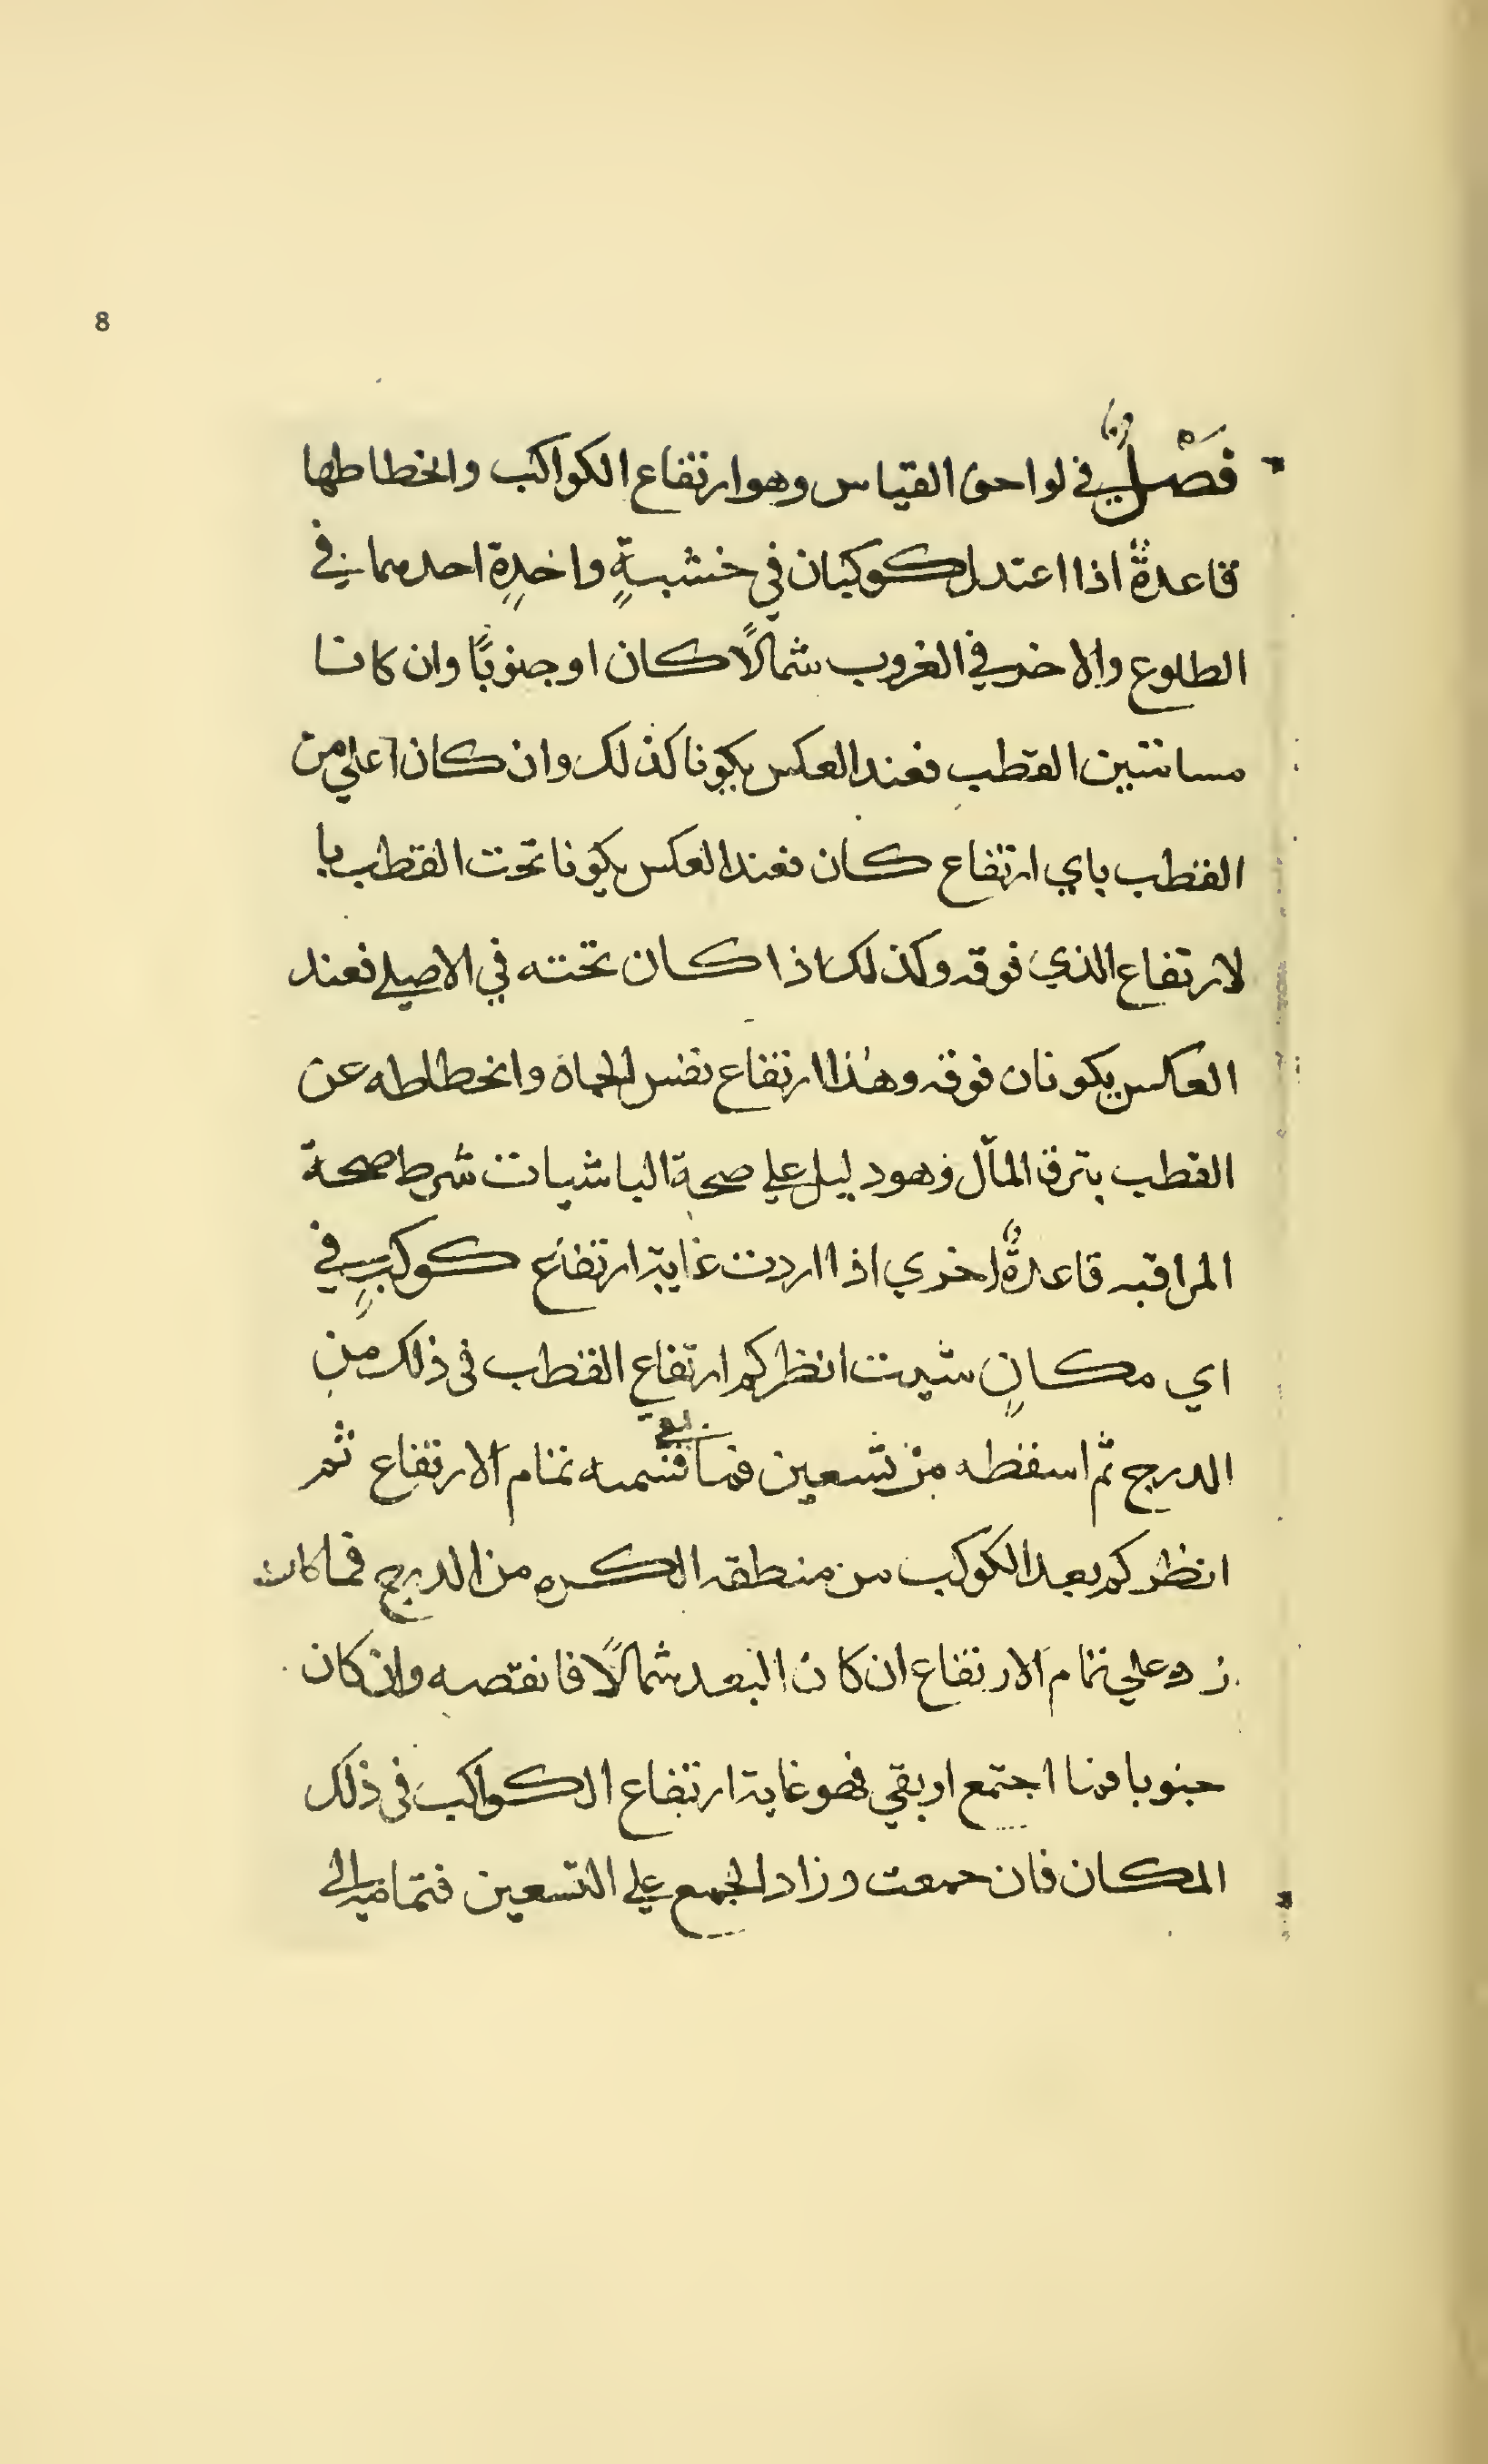 8
فَصْلٌ في لواحق القياس وهو ارتفاع الكواكب وانخطاطها
قاعدةٌ اذا اعتدل كوكبان في خشبةٍ واحدةٍ احدهما في
الطلوع والاخر في الغروب شمالًا كان او جنوبًا وان كانا
مسانتين القطب فعند العكس يكونا كذلك وان كان اعلي من
القطب باي ارتفاع كان فعند العكس يكونا تحت القطب با
لارتفاع الذي فوقه وكذلك اذا كان تحته في الاصلي فعند
العكس يكونان فوقه وهذا ارتفاع نفس الجاه وانخطاطه عن
القطب بترفا المآل وهو دليل علي صحة الباشيات شرط صحة
المراقبه قاعدةٌ اخري اذا اردت غاية ارتفاع كوكبٍ في
اي مكانٍ شيت انظر كم ارتفاع القطب في ذلك من
الدرج ثم اسقطه من تسعين فما بقي فسميه تمام الارتفاع ثم
انظر كم بعد الكوكب من منطقه الكره من الدرج فما كان
زده علي تمام الارتفاع ان كان البعد شمالًا فانقصه وان كان
جنوبا فما اجتمع او بقي فهو غاية ارتفاع الكواكب في ذلك
المكان فان جمعت وزاد الجمع علي التسعين فتمامه الي